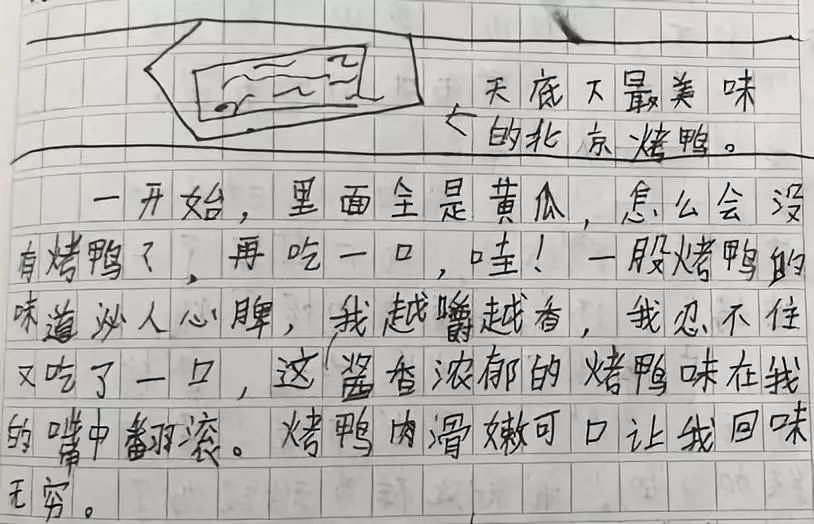 天底下最美味
的北京烤鸭。
一开始，里面全是黄瓜，怎么会没
有烤鸭了，再吃一口，哇！一股烤鸭的
味道沁人心脾，我越嚼越香，我忍不住
又吃了一口，这酱香浓郁的烤鸭味在我
的嘴中翻滚。烤鸭肉滑嫩可口让我回味
无穷。